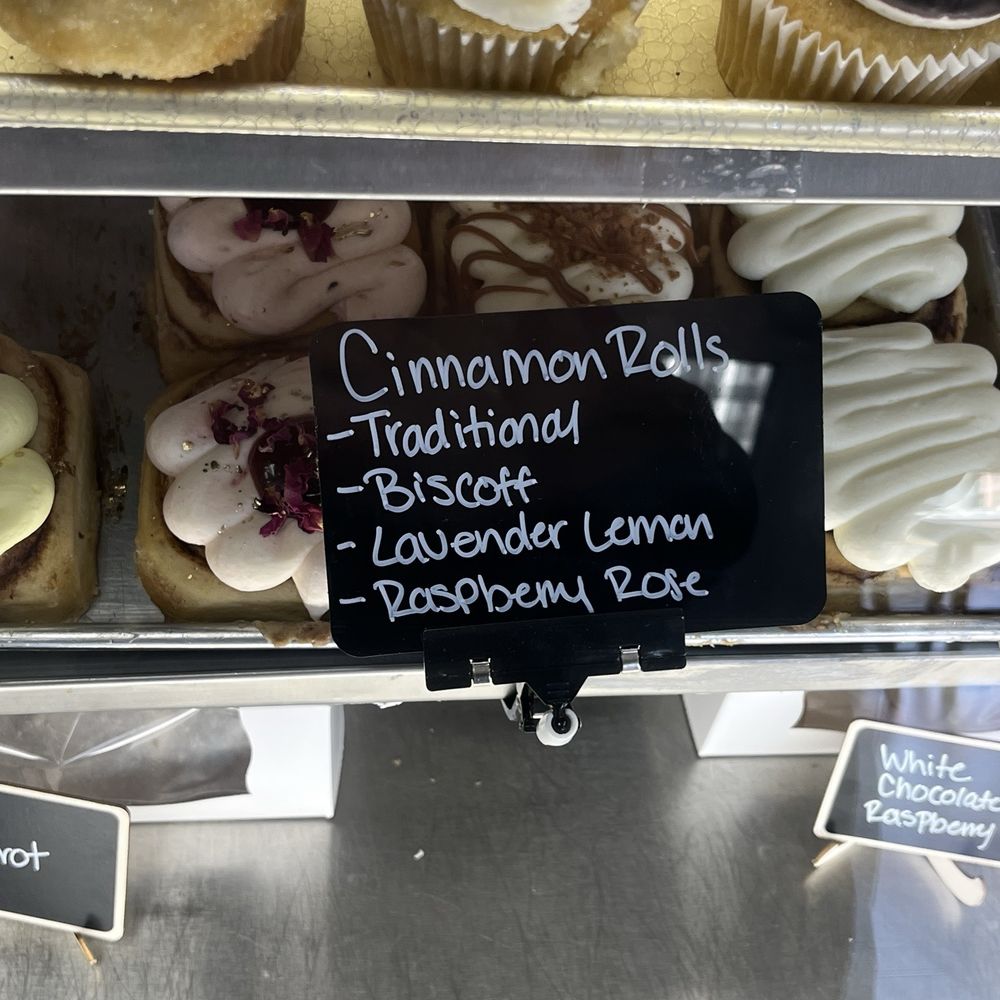 Cinnamon Rolls
- Traditional
- Biscoff
- Lavender Lemon
- Raspberry Rose
White
Chocolate
Raspberry
rot